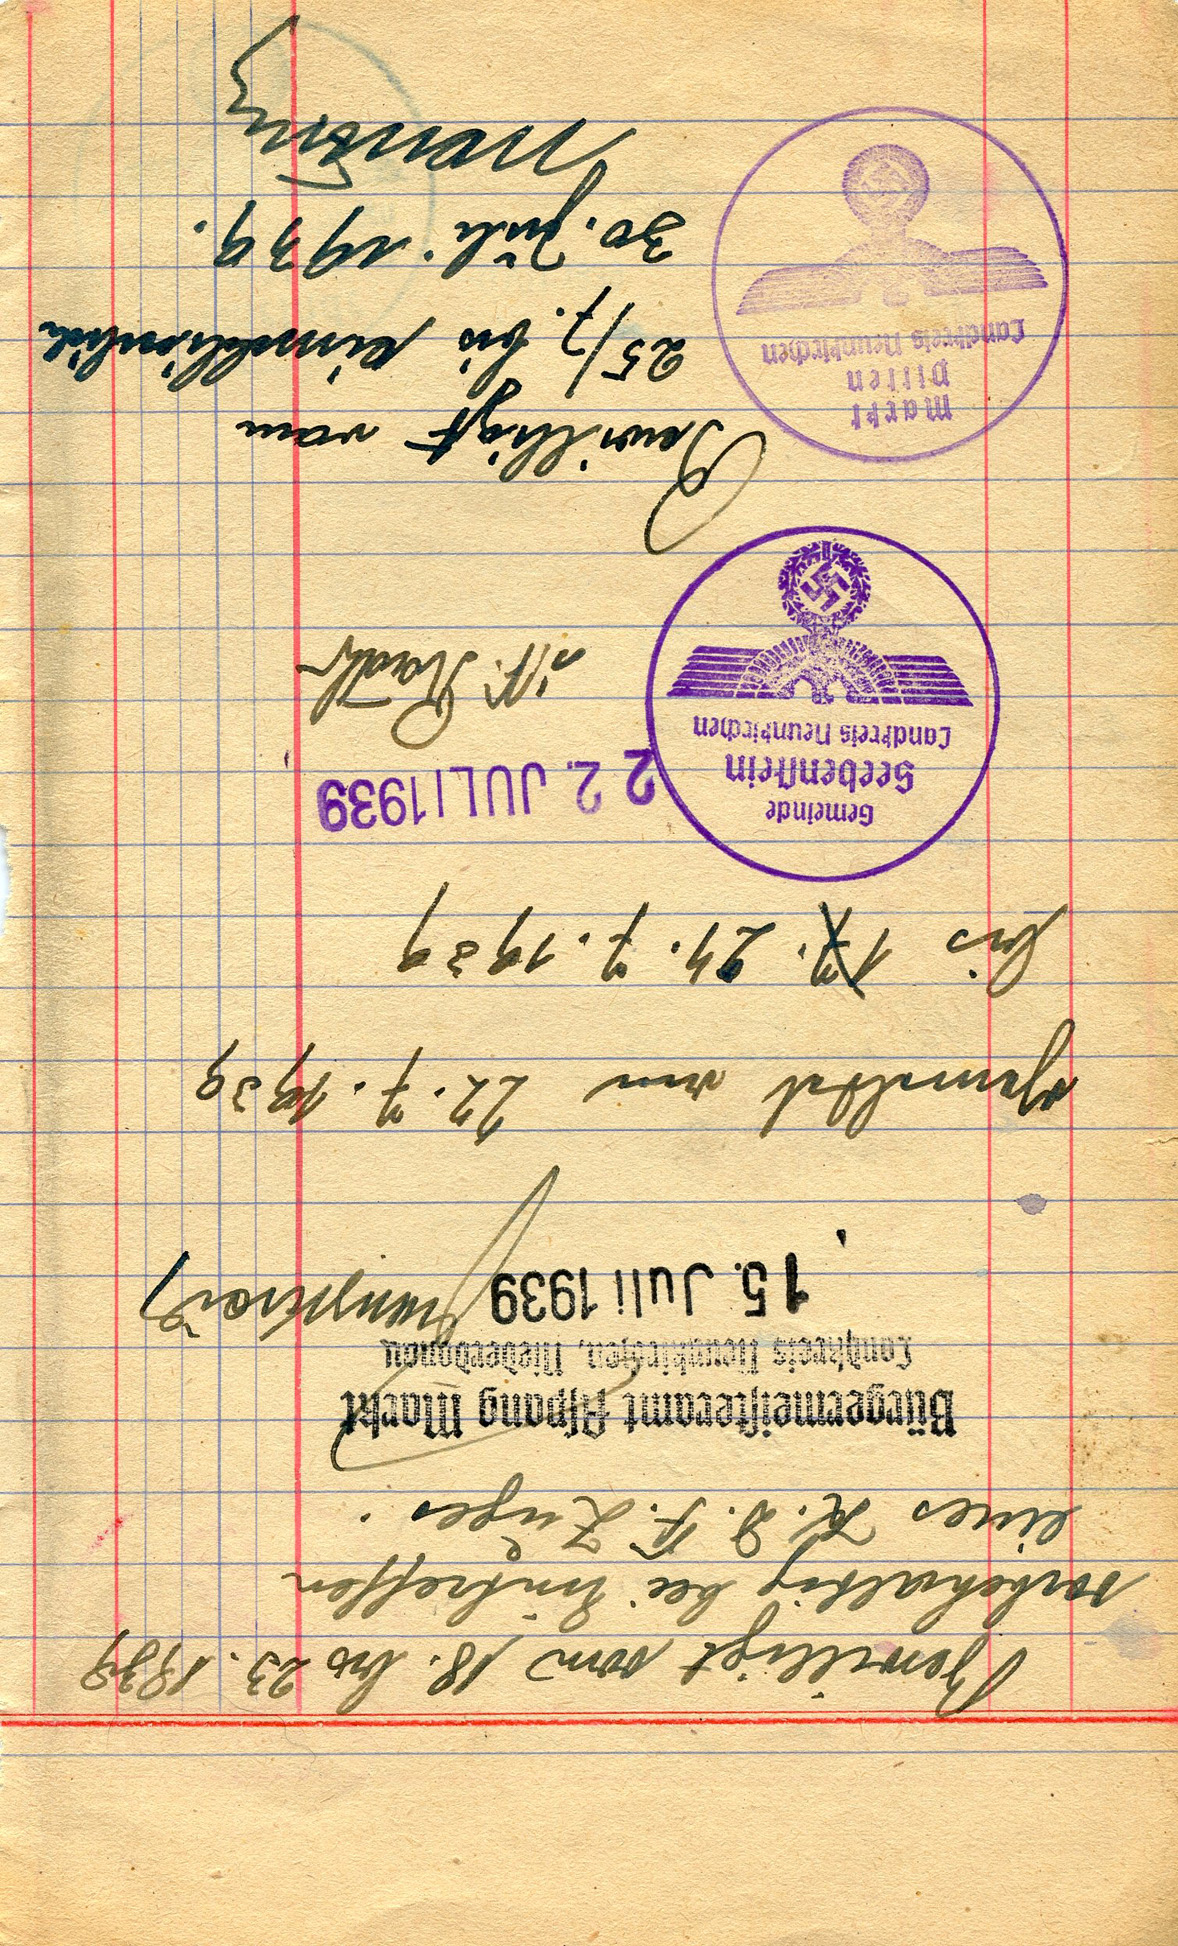 Bewilligt vom 18. bis 23. 1939
vorbehaltig bei Eintreffen
eines K. D. F. Zuges.
Bürgermeisteramt Aspang Markt
Landkreis Neunkirchen, Niederdonau
15. Juli 1939
Gemeldet vom 22. 7. 1939
bis 24. 7. 1939
Gemeinde
Seebenstein
Landkreis Neunkirchen
22. JULI 1939
Bewilligt vom
25/7. bis einschließlich
30. Juli 1939.
Markt
Pitten
Landkreis Neunkirchen